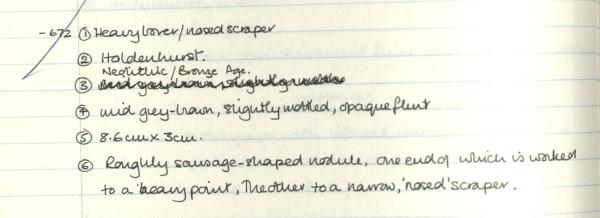 -672 ① Heavy borer/nosed scraper
② Holdenhurst.
Neolithic/Bronze Age.
③ mid grey-brown, slightly mottled
④ mid grey-brown, slightly mottled, opaque flint
⑤ 8.6cm x 3cm.
⑥ Roughly sausage-shaped nodule, one end of which is worked
to a heavy point, the other to a narrow, 'nosed' scraper.